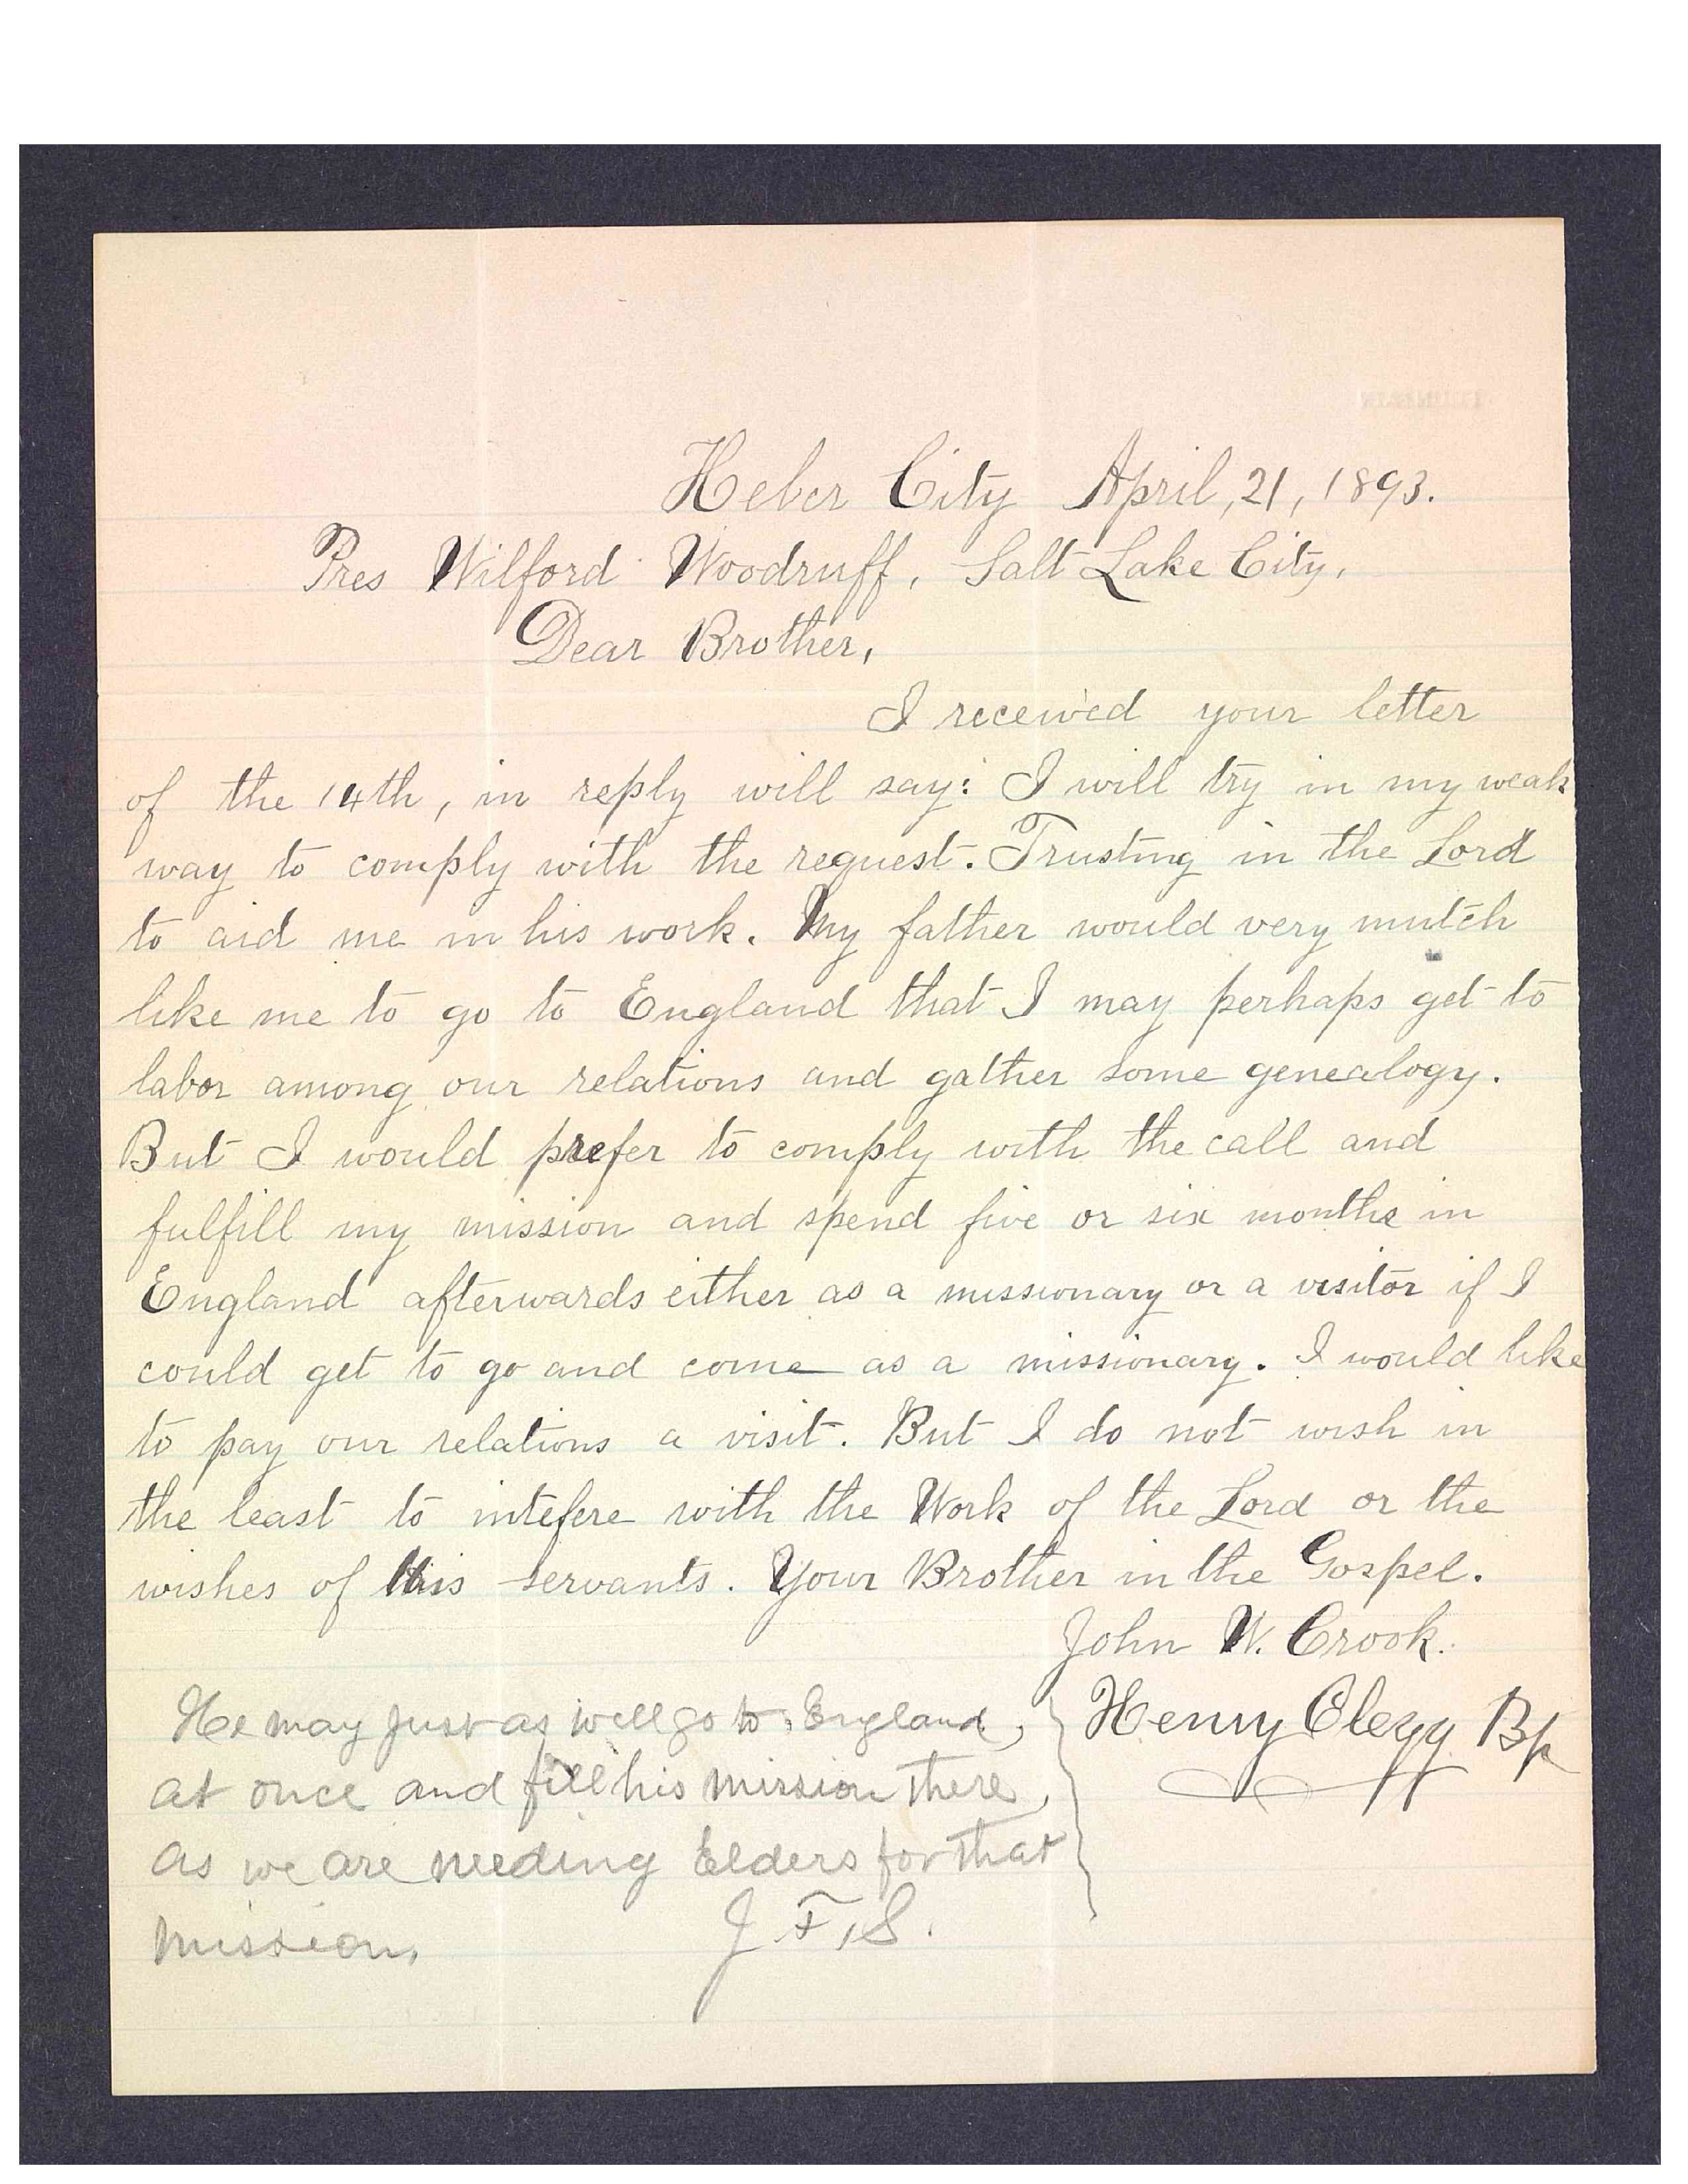 Heber City April, 21, 1893.
Pres Wilford Woodruff, Salt Lake City,
Dear Brother,
I received your letter
of the 14th, in reply will say: I will try in my weak
way to comply with the request. Trusting in the Lord
to aid me in his work. My father would very mutch
like me to go to England that I may perhaps get to
labor among our relations and gather some genealogy.
But I would prefer to comply with the call and
fulfill my mission and spend five or six months in
England afterwards either as a missionary or a visitor if I
could get to go and come as a missionary. I would like
to pay our relations a visit. But I do not wish in
the least to intefere with the Work of the Lord or the
wishes of His servants. Your Brother in the Gospel.
John W. Crook.
Henry Clegg Bp
He may just as well go to England,
at once and fill his mission there,
as we are needing Elders for that
mission,
J. F. S.